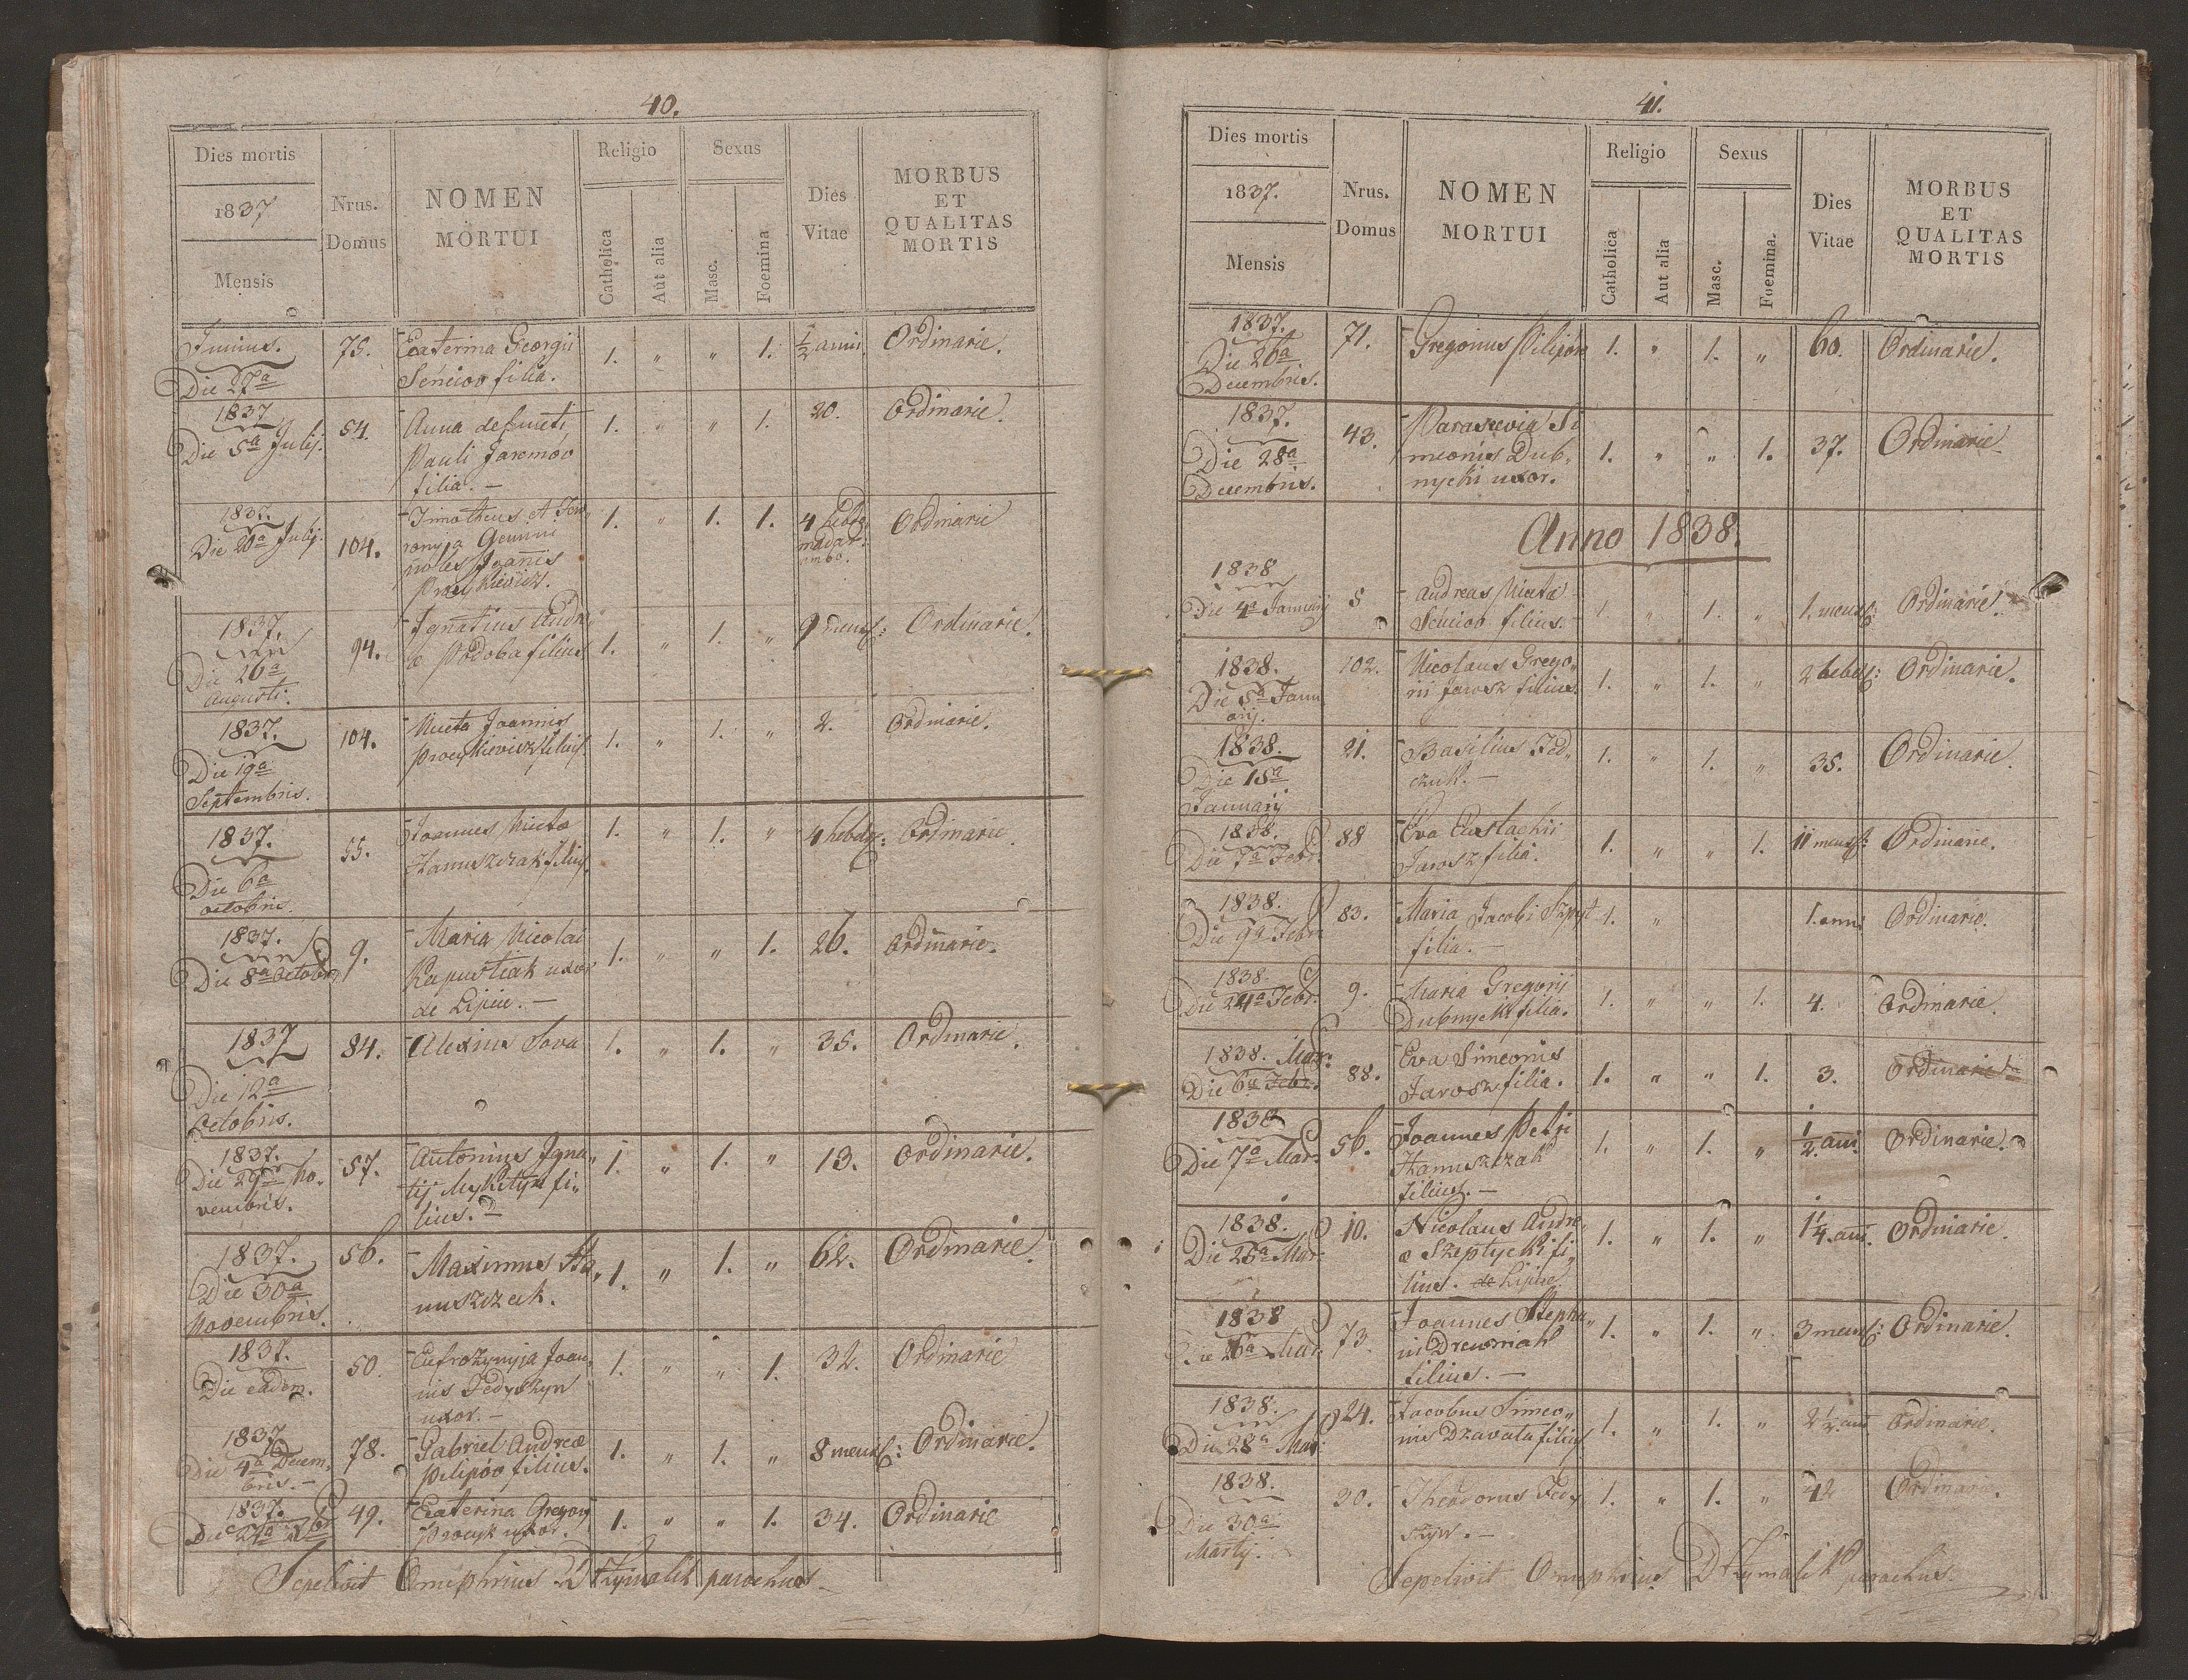 40.
Dies mortis
1837
Mensis
Nrus. Domus
NOMEN MORTUI
Religio
Catholica
Aut alia
Sexus
Masc.
Foemina
Dies Vitae
MORBUS ET QUALITAS MORTIS
Junius. 75. Ecaterina Georgii 1. " " 1. 1/2 anni. Ordinarie.
Die 27a Seńciov filia.
1837
Die 5a Julij. 54. Anna defuncti 1. " " 1. 20. Ordinarie.
Pauli Jaremóv
filia. –
1837.
Die 20a Julij. 104. Timotheus et Fev, 1. " 1. 1. 4 hebdo, Ordinarie
ronyja Gemini madar:
proles Joannis ambo.
Procykievicz.
1837.
Die 26a 94. Ignatius Andre, 1. " 1. " 9 mens: Ordinarie.
Augusti. æ Podoba filius
1837. 104. Nicetа Joannis 1. " 1. " 2. Ordinarie.
Die 19a Procykievicz filius
Septembris.
1837. 55. Joannes Nicetæ 1. " 1. " 4 hebd: Ordinarie
Die 6a Hanuszczak filius.
octobris.
1837. 9. Maria Nicolai 1. " " 1. 26. Ordinarie.
Die 8a octobris Kapustiak uxor
de Lipie. –
1837 84. Alexius Sova 1. " 1. " 35. Ordinarie.
Die 12a
Octobris.
1837. 57. Antonius Igna, 1. " 1. " 13. Ordinarie.
Die 29a No, tij Mykityn fi,
vembris. lius. –
1837. 56. Maximus Ha, 1. " 1. " 62. Ordinarie
Die 30a nuszczak.
Novembris.
1837. 50. Eufrozynyja Joan, 1. " " 1. 32. Ordinarie
Die eadem. nis Fedyszyn
uxor. –
1837 78. Gabriel Andreæ 1. " 1. " 8 mens: Ordinarie.
Die 4a Decem, Pilipóv filius.
bris. –
1837. 49. Ecaterina Gregorij 1. " " 1. 34. Ordinarie
Die 24a Xbr Procyk uxor.
Sepelivit Onuphrius Drzymalik parochus
41.
Dies mortis
1837.
Mensis
Nrus. Domus
NOMEN MORTUI
Religio
Catholica
Aut alia
Sexus
Masc.
Foemina.
Dies Vitae
MORBUS ET QUALITAS MORTIS
1837. 71. Gregorius Pilipóv 1. " 1. " 60. Ordinarie.
Die 26a
Decembris.
1837. 43. Parascevia Si
Die 28a meonis Dub, 1. " " 1. 37. Ordinarie
Decembris. nycki uxor.
Anno 1838.
1838
Die 4a Januarij 5 Andreas Nicetæ 1. " 1. " 1. mens: Ordinarie.
Seńciov filius. –
1838. 102. Nicolaus Grego, 1. " 1. " 2 hebd: Ordinarie.
Die 5a Janu rii Jarosz filius.
arij.
1838. 21. Basilius Fed, 1. " 1. " 35. Ordinarie.
Die 15a czuk. –
Januarij
1838. 88 Eva Eustachii 1. " " 1. 11 mens: Ordinarie.
Die 7a Febr. Jarosz filia.
1838. 83. Maria Jacobi Szpyt 1. " 1. anni Ordinarie.
Die 9a Febr. filia. –
1838. 9. Maria Gregorij 1. " " 1. 4. Ordinarie.
Die 24a Febr. Dubnycki filia.
1838. Mar: 88. Eva Simeonis 1. " " 1. 3. Ordinarie
Die 6a Febr. Jarosz filia.
1838 56. Joannes Petri 1. " 1. " 1/2 ani. Ordinarie.
Die 7a Mar: Hanuszczak
filius. –
1838. 10. Nicolaus Andre, 1. " 1. " 1 1/4 ani. Ordinarie.
Die 25a Mar: æ Szeptycki fi,
lius. de Lipie
1838 73. Joannes Stepha, 1. " 1. " 3 mens: Ordinarie.
Die 26a Mar: ni Drewniak
filius. –
1838. 24. Jacobus Simeo, 1. " 1. " 2 1/2 ani Ordinarie.
Die 28a Mar: nis Dzavala filius
1838. 30. Theodorus Fedy 1. " 1. " 42 Ordinarie.
Die 30a szyn. –
Martij.
Sepelivit Onuphrius Drzymalik parochus.